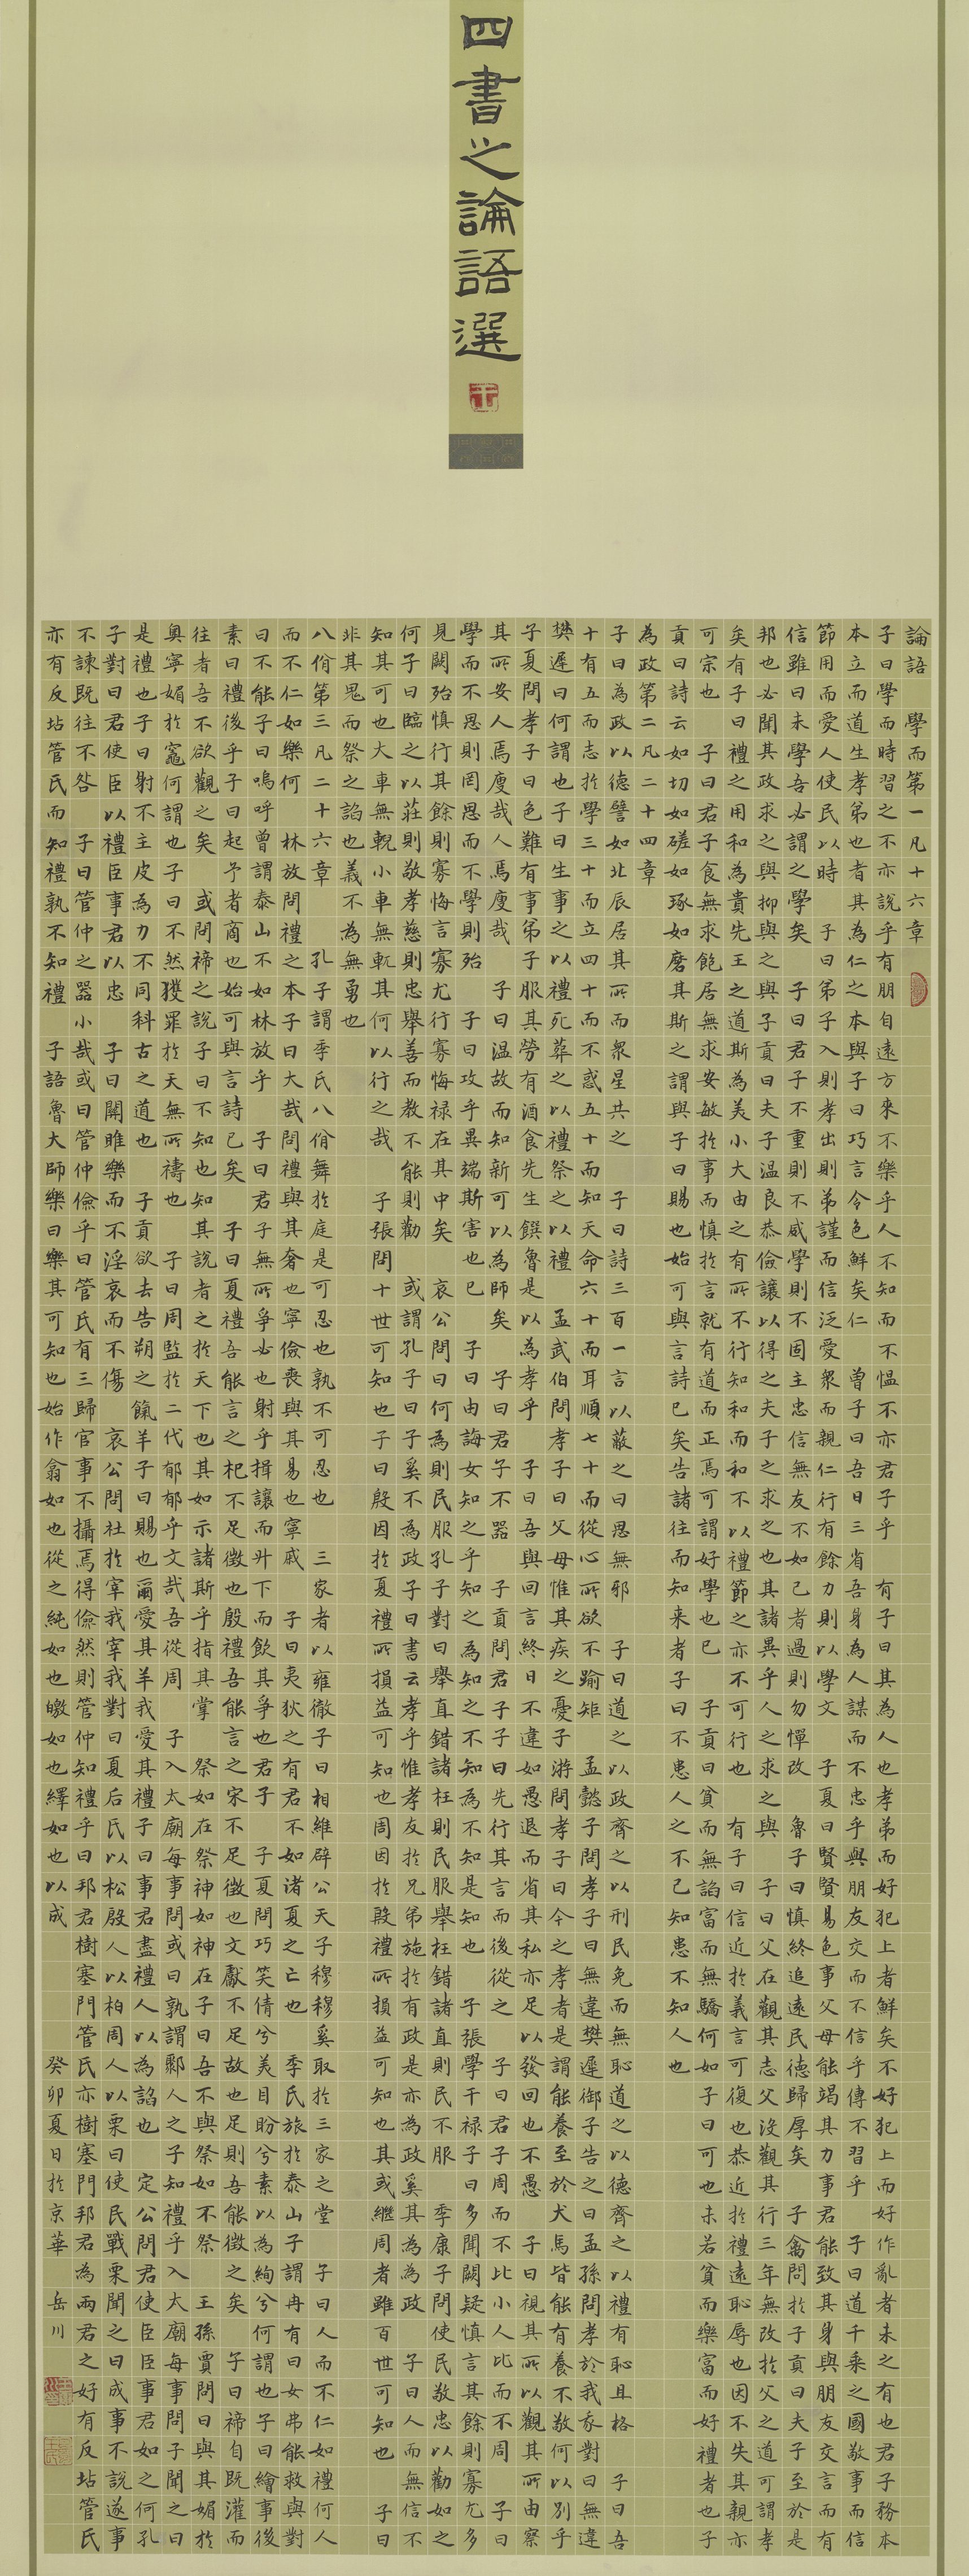 四書之論語選
論語 學而第一凡十六章
子曰學而時習之不亦說乎有朋自遠方來不樂乎人不知而不慍不亦君子乎 有子曰其為人也孝弟而好犯上者鮮矣不好犯上而好作亂者未之有也君子務本
本立而道生孝弟也者其為仁之本與子曰巧言令色鮮矣仁 曾子曰吾日三省吾身為人謀而不忠乎與朋友交而不信乎傳不習乎 子曰道千乘之國敬事而信
節用而愛人使民以時 子曰弟子入則孝出則弟謹而信泛愛衆而親仁行有餘力則以學文 子夏曰賢賢易色事父母能竭其力事君能致其身與朋友交言而有
信雖曰未學吾必謂之學矣 子曰君子不重則不威學則不固主忠信無友不如己者過則勿憚改 魯子曰慎終追遠民德歸厚矣 子禽問於子貢曰夫子至於是
邦也必聞其政求之與抑與之與子貢曰夫子温良恭儉讓以得之夫子之求之也其諸異乎人之求之與 子曰父在觀其志父沒觀其行三年無改於父之道可謂孝
矣有子曰禮之用和為貴先王之道斯為美小大由之有所不行知和而和不以禮節之亦不可行也 有子曰信近於義言可復也恭近於禮遠恥辱也因不失其親亦
可宗也 子曰君子食無求飽居無求安敏於事而慎於言就有道而正焉可謂好學也已 子貢曰貧而無諂富而無驕何如子曰可也未若貧而樂富而好禮者也子
貢曰詩云如切如磋如琢如磨其斯之謂與子曰賜也始可與言詩已矣告諸往而知来者子曰不患人之不己知患不知人也
為政第二凡二十四章
子曰為政以德譬如北辰居其所而衆星共之 子曰詩三百一言以蔽之曰思無邪 子曰道之以政齊之以刑民免而無恥道之以德齊之以禮有恥且格 子曰吾
十有五而志於學三十而立四十而不惑五十而知天命六十而耳順七十而從心所欲不踰矩 孟懿子問孝子曰無違樊遲御子告之曰孟孫問孝於我我對曰無違
樊遲曰何謂也子曰生事之以禮死葬之以禮祭之以禮 孟武伯問孝子曰父母惟其疾之憂子游問孝子曰今之孝者是謂能養至於犬馬皆能有養不敬何以別乎
子夏問孝子曰色難有事弟子服其勞有酒食先生饌魯是以為孝乎 子曰吾與回言終日不違如愚退而省其私亦足以發回也不愚 子曰視其所以觀其所由察
其所安人焉廋哉人焉廋哉 子曰温故而知新可以為師矣 子曰君子不器 子貢問君子子曰先行其言而後從之 子曰君子周而不比小人比而不周 子曰
學而不思則罔思而不學則殆 子曰攻乎異端斯害也已 子曰由誨女知之乎知之為知之不知為不知是知也 子張學干禄子曰多聞闕疑慎言其餘則寡尤多
見闕殆慎行其餘則寡悔言寡尤行寡悔禄在其中矣 哀公問曰何為則民服孔子對曰舉直錯諸枉則民服舉枉錯諸直則民不服 季康子問使民敬忠以勸如之
何子曰臨之以莊則敬孝慈則忠舉善而教不能則勸 或謂孔子曰子奚不為政子曰書云孝乎惟孝友於兄弟施於有政是亦為政奚其為為政 子曰人而無信不
知其可也大車無輗小車無軏其何以行之哉 子張問十世可知也子曰殷因於夏禮所損益可知也周因於殷禮所損益可知也其或繼周者雖百世可知也 子曰
非其鬼而祭之諂也義不為無勇也
八佾第三凡二十六章 孔子謂季氏八佾舞於庭是可忍也孰不可忍也 三家者以雍徹子曰相維辟公天子穆穆奚取於三家之堂 子曰人而不仁如禮何人
而不仁如樂何 林放問禮之本子曰大哉問禮與其奢也寧儉喪與其易也寧戚 子曰夷狄之有君不如诸夏之亡也 季氏旅於泰山子謂冉有曰女弗能救與對
曰不能子曰嗚呼曾謂泰山不如林放乎 子曰君子無所爭必也射乎揖讓而升下而飲其爭也君子 子夏問巧笑倩兮美目盼兮素以為絢兮何謂也子曰繪事後
素曰禮後乎子曰起予者商也始可與言詩已矣 子曰夏禮吾能言之杞不足徵也殷禮吾能言之宋不足徵也文獻不足故也足則吾能徵之矣 子曰禘自既灌而
往者吾不欲觀之矣 或問禘之說子曰不知也知其說者之於天下也其如示諸斯乎指其掌 祭如在祭神如神在子曰吾不與祭如不祭 王孫賈問曰與其媚於
奧寧媚於竈何謂也子曰不然獲罪於天無所禱也 子曰周監於二代郁郁乎文哉吾從周 子入太廟每事問或曰孰謂鄹人之子知禮乎入太廟每事問子聞之曰
是禮也子曰射不主皮為力不同科古之道也 子貢欲去告朔之餼羊子曰賜也爾愛其羊我愛其禮子曰事君盡禮人以為諂也 定公問君使臣臣事君如之何孔
子對曰君使臣以禮臣事君以忠 子曰關雎樂而不淫哀而不傷 哀公問社於宰我宰我對曰夏后氏以松殷人以柏周人以栗曰使民戰栗聞之曰成事不說遂事
不諫既往不咎 子曰管仲之器小哉或曰管仲儉乎曰管氏有三歸官事不攝焉得儉然則管仲知禮乎曰邦君樹塞門管氏亦樹塞門邦君為兩君之好有反坫管氏
亦有反坫管氏而知禮孰不知禮 子語魯大師樂曰樂其可知也始作翕如也從之純如也皦如也繹如也以成 癸卯夏日於京華 岳川